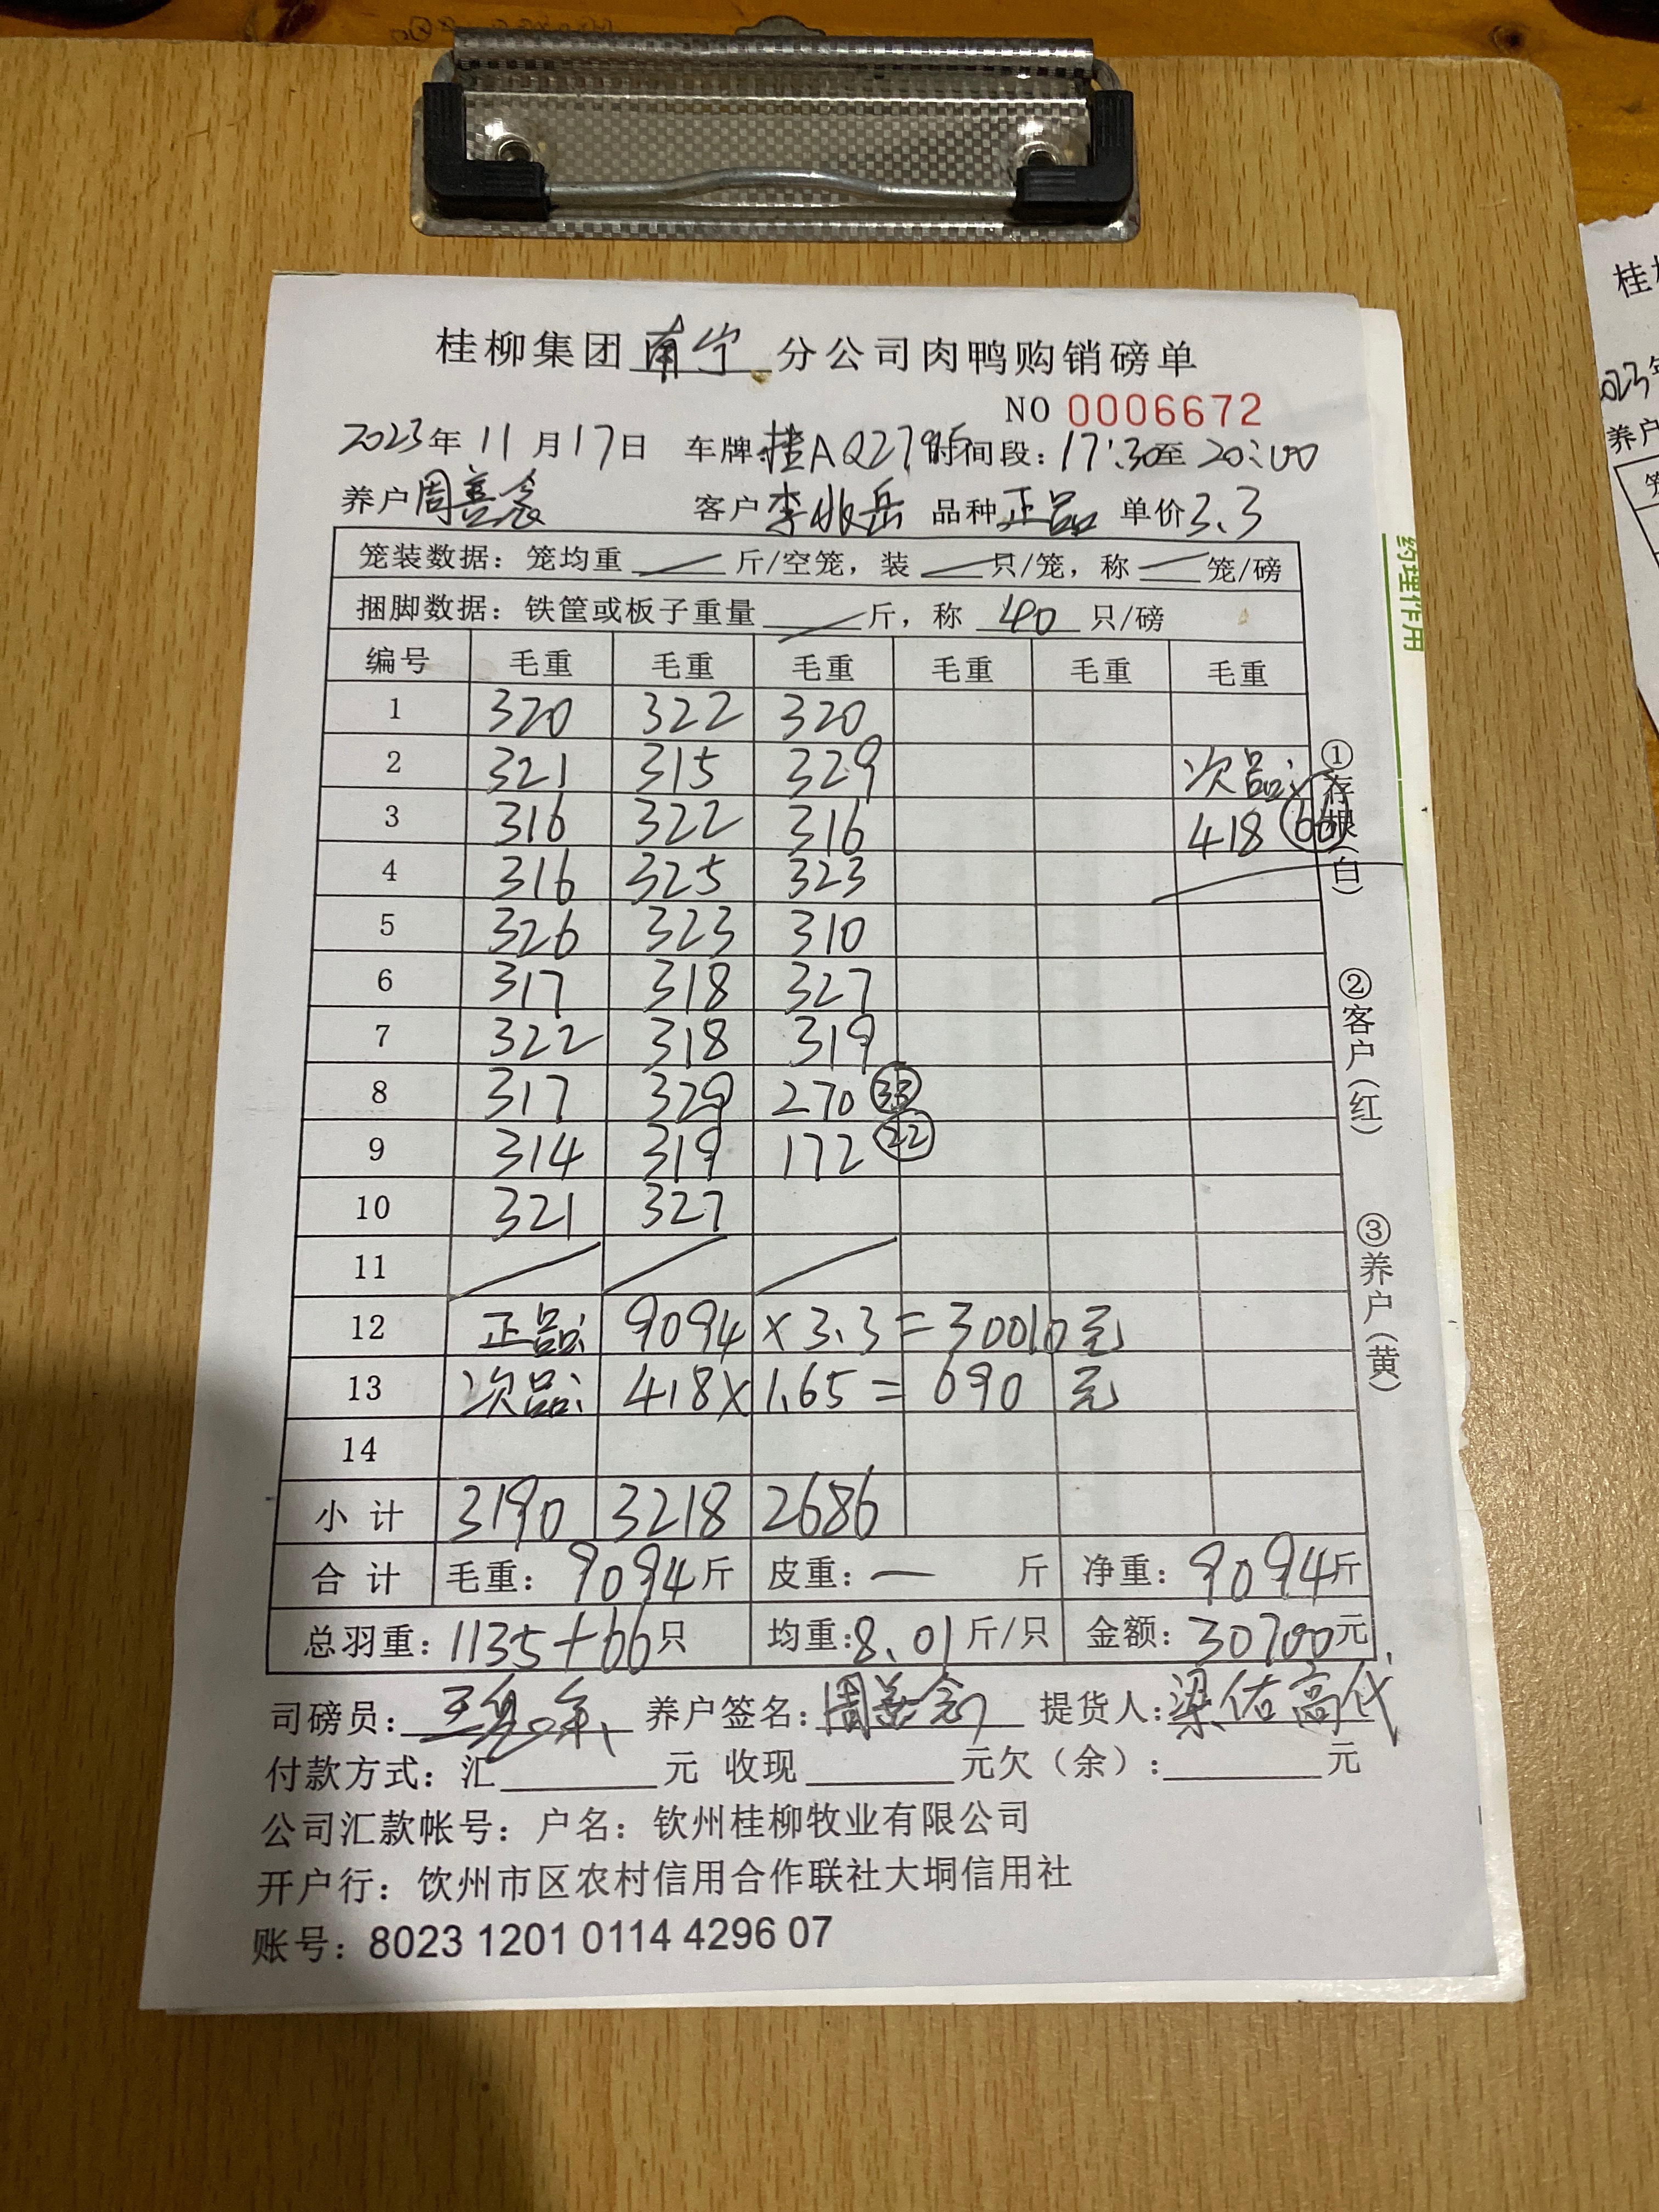 桂柳集团南宁分公司肉鸭购销磅单
NO 0006672
2023年11月17日 车牌:桂AQ279 时间段:17:30至20:00
养户周善 客户李 岳 品种正品 单价3.3
笼装数据:笼均重 斤/空笼,装 只/笼,称 笼/磅
捆脚数据:铁筐或板子重量 斤,称 40 只/磅
编号 毛重 毛重 毛重 毛重 毛重 毛重
1 320 322 320
2 321 315 329 次品:
3 316 322 316 418 66
4 316 325 323
5 326 323 310
6 317 318 327
7 322 318 319
8 317 329 270 33
9 314 319 172 22
10 321 327
11
12 正品: 9094 × 3.3 = 30010元
13 次品: 418 × 1.65 = 690 元
14
小计 3190 3218 2686
合计 毛重:9094斤 皮重:— 斤 净重:9094斤
总羽重:1135+66只 均重:8.01斤/只 金额:30700元
司磅员: 养户签名:周善 提货人:梁佑高代
付款方式:汇 元 收现 元欠(余): 元
公司汇款帐号:户名:钦州桂柳牧业有限公司
开户行:钦州市区农村信用合作联社大垌信用社
账号:8023 1201 0114 4296 07
①存根(白)
②客户(红)
③养户(黄)
药理作用
桂
023年
养户